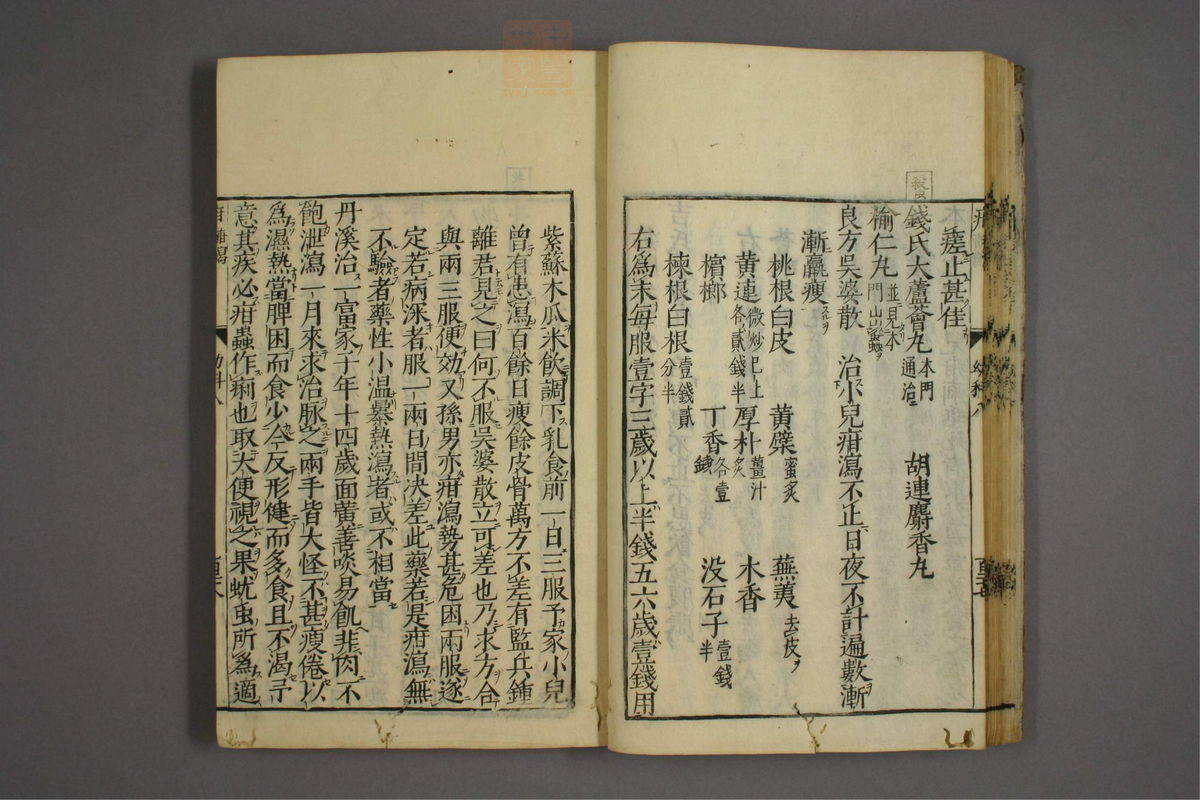 瘥止甚佳
錢氏大蘆薈丸本門通治 胡連麝香丸
榆仁丸並見本門出蟲
良方吳婆散 治小兒疳瀉不止日夜不計遍數漸
漸羸瘦
桃根白皮 黄蘗蜜炙 蕪荑去皮
黄連微炒已上各貳錢半 厚朴薑汁炙 木香
檳榔 丁香各壹錢 没石子壹錢半
楝根白根壹錢貳分半
右爲末每服壹字三歲以上半錢五六歲壹錢用
紫蘇木瓜米飲調下乳食前一日三服予家小兒
曾有患瀉百餘日瘦餘皮骨萬方不差有監兵鍾
離君見之曰何不服吳婆散立可差也乃求方合
與兩三服便効又孫男亦疳瀉勢甚危困兩服遂
定若病深者服一兩日間決差此藥若是疳瀉無
不驗者藥性小温暴熱瀉者或不相當
丹溪治一富家子年十四歲面黄善啖易飢非肉不
飽泄瀉一月來求治脉之兩手皆大怪不甚瘦倦以
爲濕熱當脾困而食少今反形健而多食且不渴予
意其疾必疳蟲作痢也取大便視之果蚘虫所爲適
幼科八